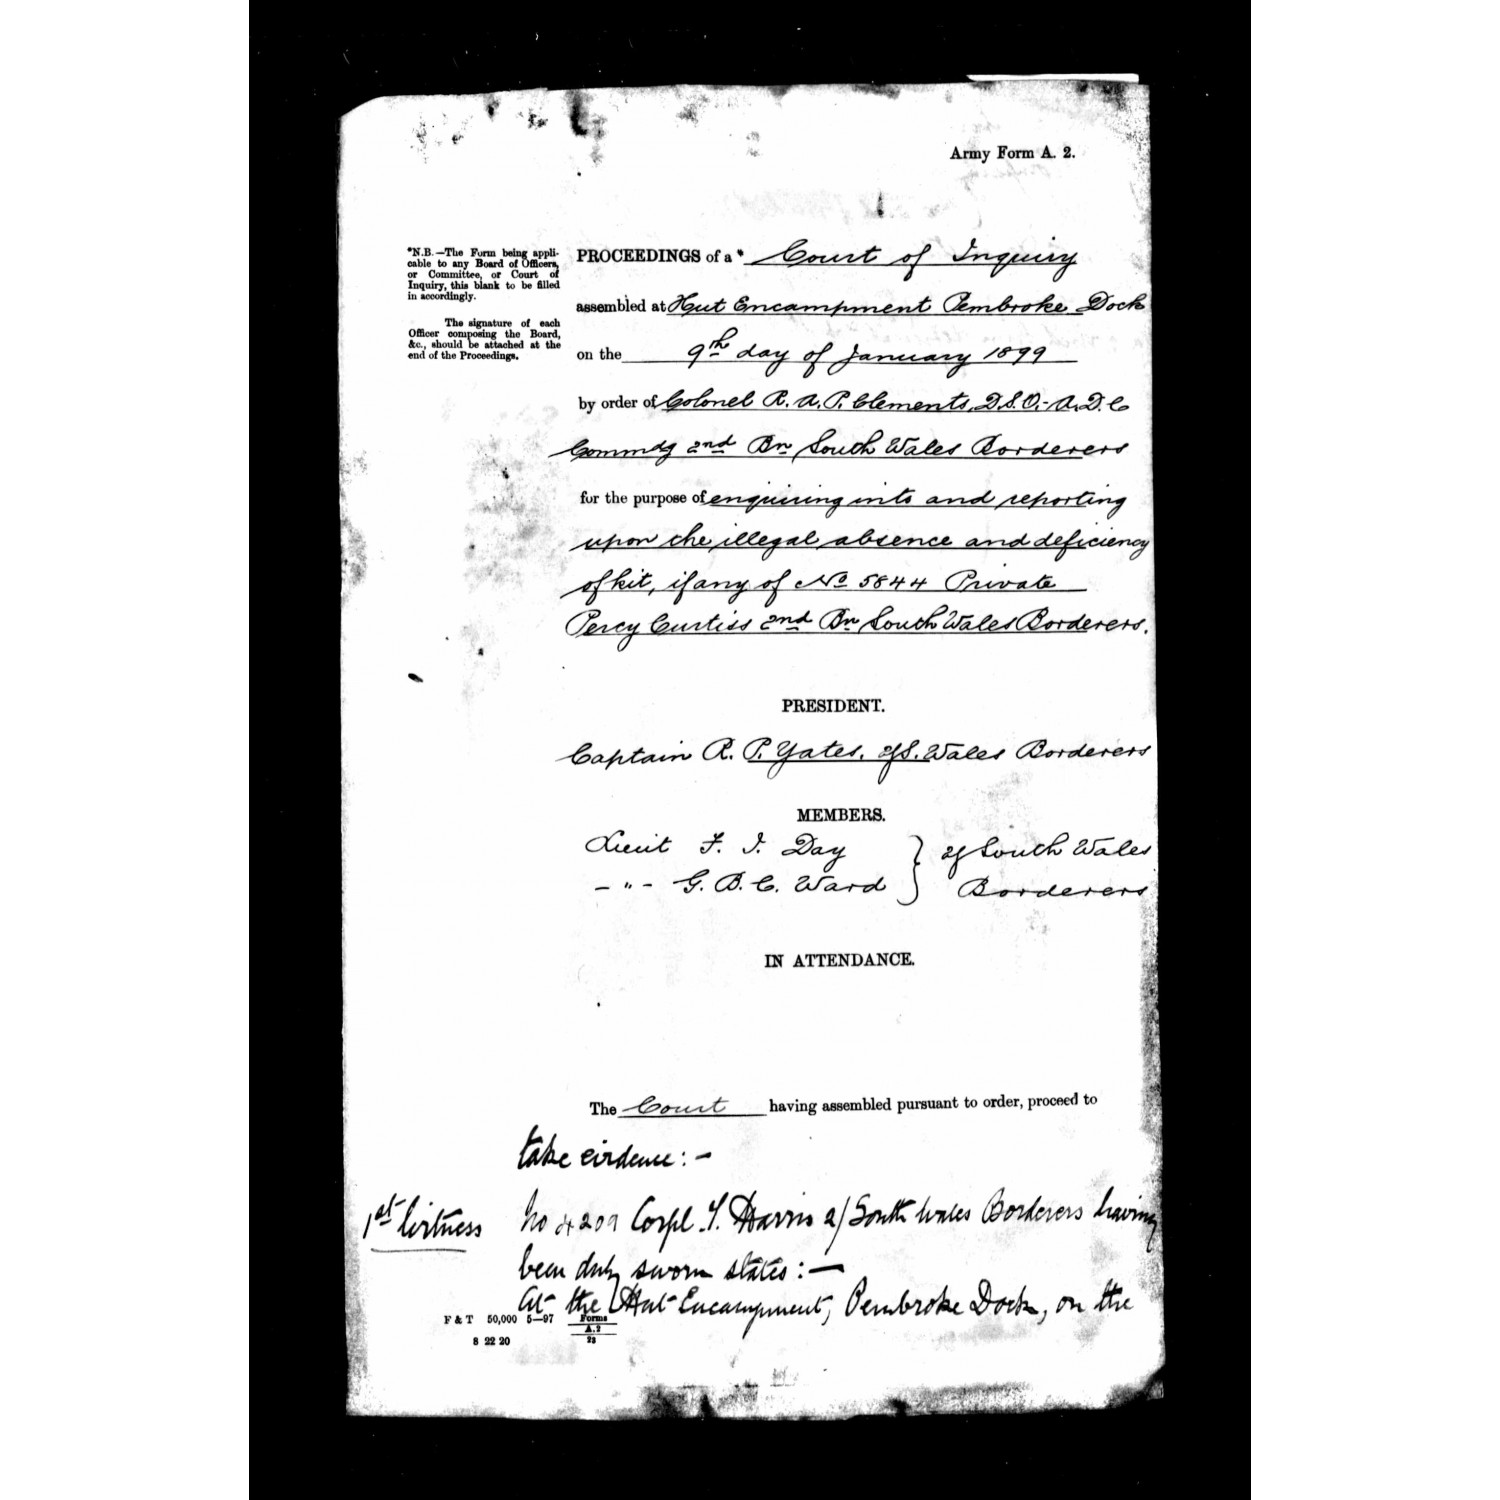 Army Form A. 2.
*N.B.—The Form being appli-
cable to any Board of Officers,
or Committee, or Court of
Inquiry, this blank to be filled
in accordingly.
The signature of each
Officer composing the Board,
&c., should be attached at the
end of the Proceedings.
PROCEEDINGS of a * Court of Inquiry
assembled at Hut Encampment Pembroke Dock
on the 9th day of January 1899
by order of Colonel R. A. P. Clements, D.S.O.- A.D.C
Commdg 2nd Bn South Wales Borderers
for the purpose of enquiring into and reporting
upon the illegal absence and deficiency
of kit, if any of No 5844 Private
Percy Curtiss 2nd Bn South Wales Borderers.
PRESIDENT.
Captain R. P. Yates, of S. Wales Borderers
MEMBERS.
Lieut F. I. Day } of South Wales
- " - G. B. C. Ward } Borderers
IN ATTENDANCE.
The Court having assembled pursuant to order, proceed to
take evidence:-
1st Witness No 4209 Corpl. Harris 2/South Wales Borderers having
been duly sworn states:—
At the Hut Encampment, Pembroke Dock, on the
F & T 50,000 5—97 Forms
A.2
8 22 20 23